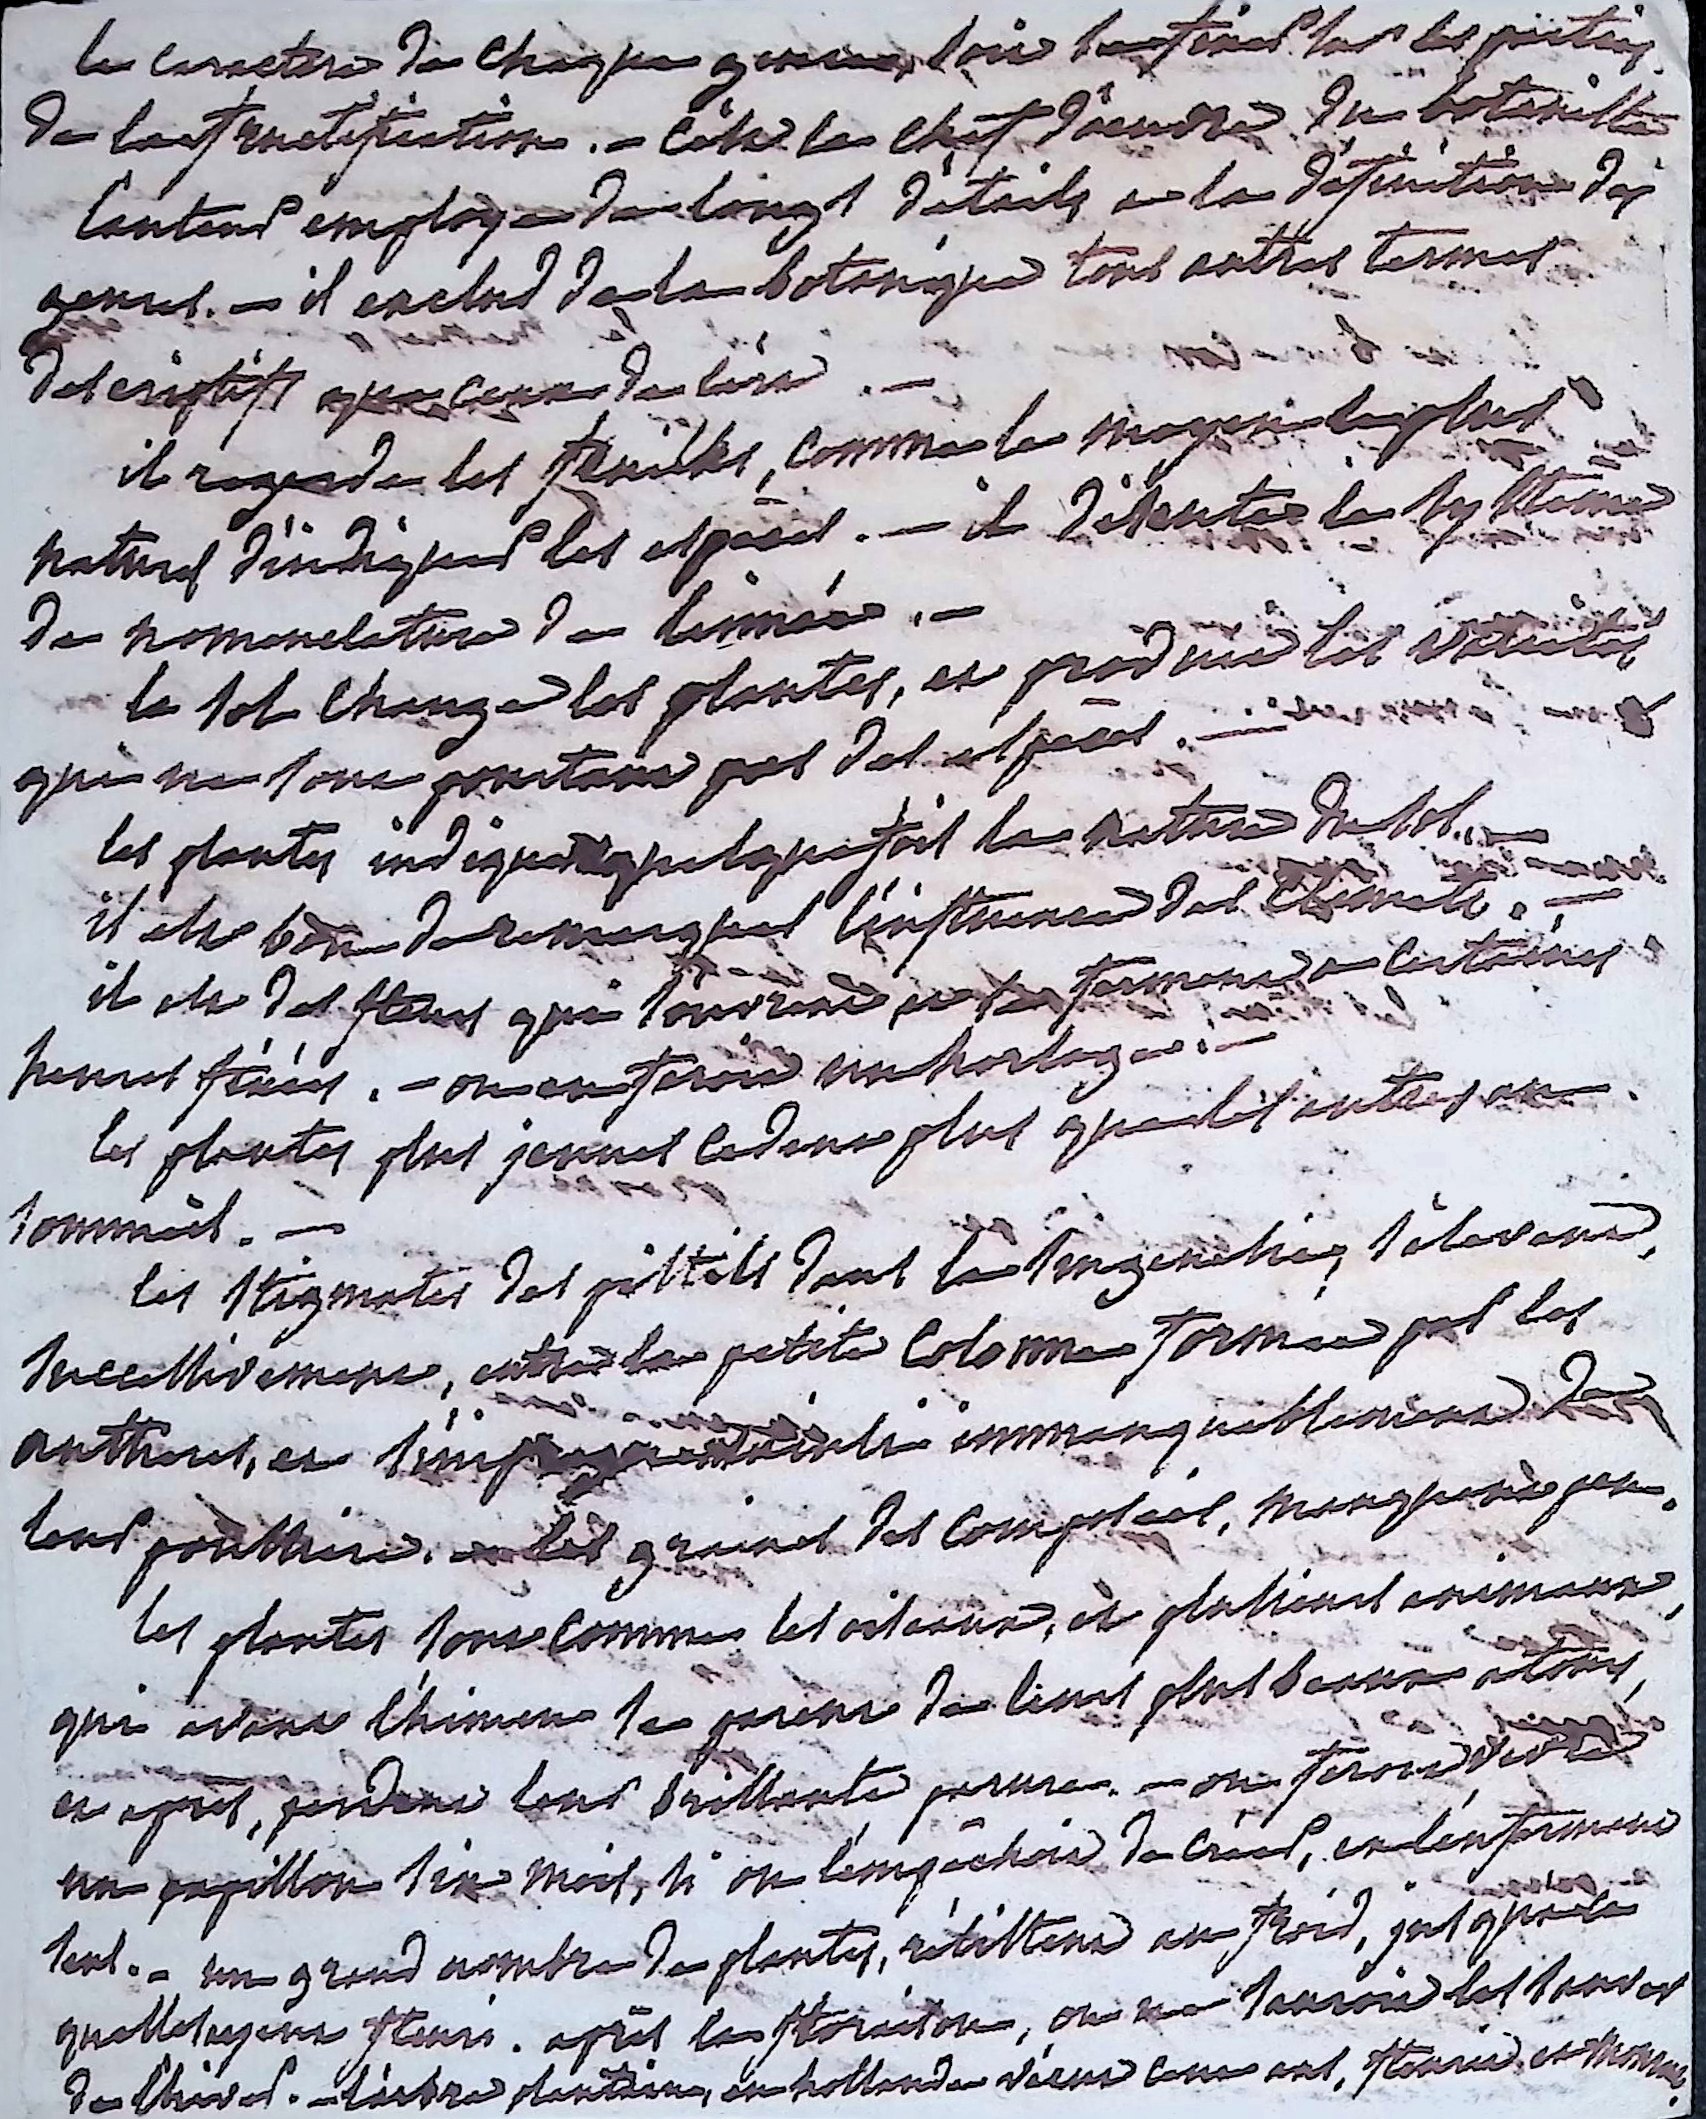 le caractere de chaque genre, doit se tirer sur les parties
de la fructification. - c'est le chef d'oeuvre du botaniste
l'auteur employe de longs détails a la définition des
genres. - il exclud de la botanique tous autres termes
descriptifs que ceux de l'art. -
il regarde les feuilles, comme le moyen le plus
naturel d'indiquer les especes. - il discute le systeme
de nomenclature de linnée. -
le sol change les plantes, et produit les variétés
qui ne sont pourtant pas des especes. -
les plantes indiquent quelque fois la nature du sol. -
il est bon de remarquer l'influence des climats. -
il est des fleurs qui s'ouvrent et se ferment a certaines
heures fixées. - on en feroit un horloge. -
les plantes plus jeunes cedent plus que les autres au
sommeil. -
les stigmates des pistils dans la singenesie, s'élevent,
successivement, entre la petite colonne formée par les
antheres, et immanquablement de
leur poussiere. - les graines des composées, manquent peu.
les plantes sont comme les oiseaux, et plusieurs animaux,
qui avant l'himen se parent de leurs plus beaux atours,
et après, perdent leur brillante parure. - on feroit vivre
un papillon six mois, si on l'empêchoit de créer, en l'enfermant
seul. - un grand nombre de plantes, résistent au froid, jusqu'a ce
qu'elles ayent fleuri. après la floraison, on ne sauroit les sauver
de l'hiver. - l'arbre plantain, en hollande vécut cent ans, fleurit, et mourut.